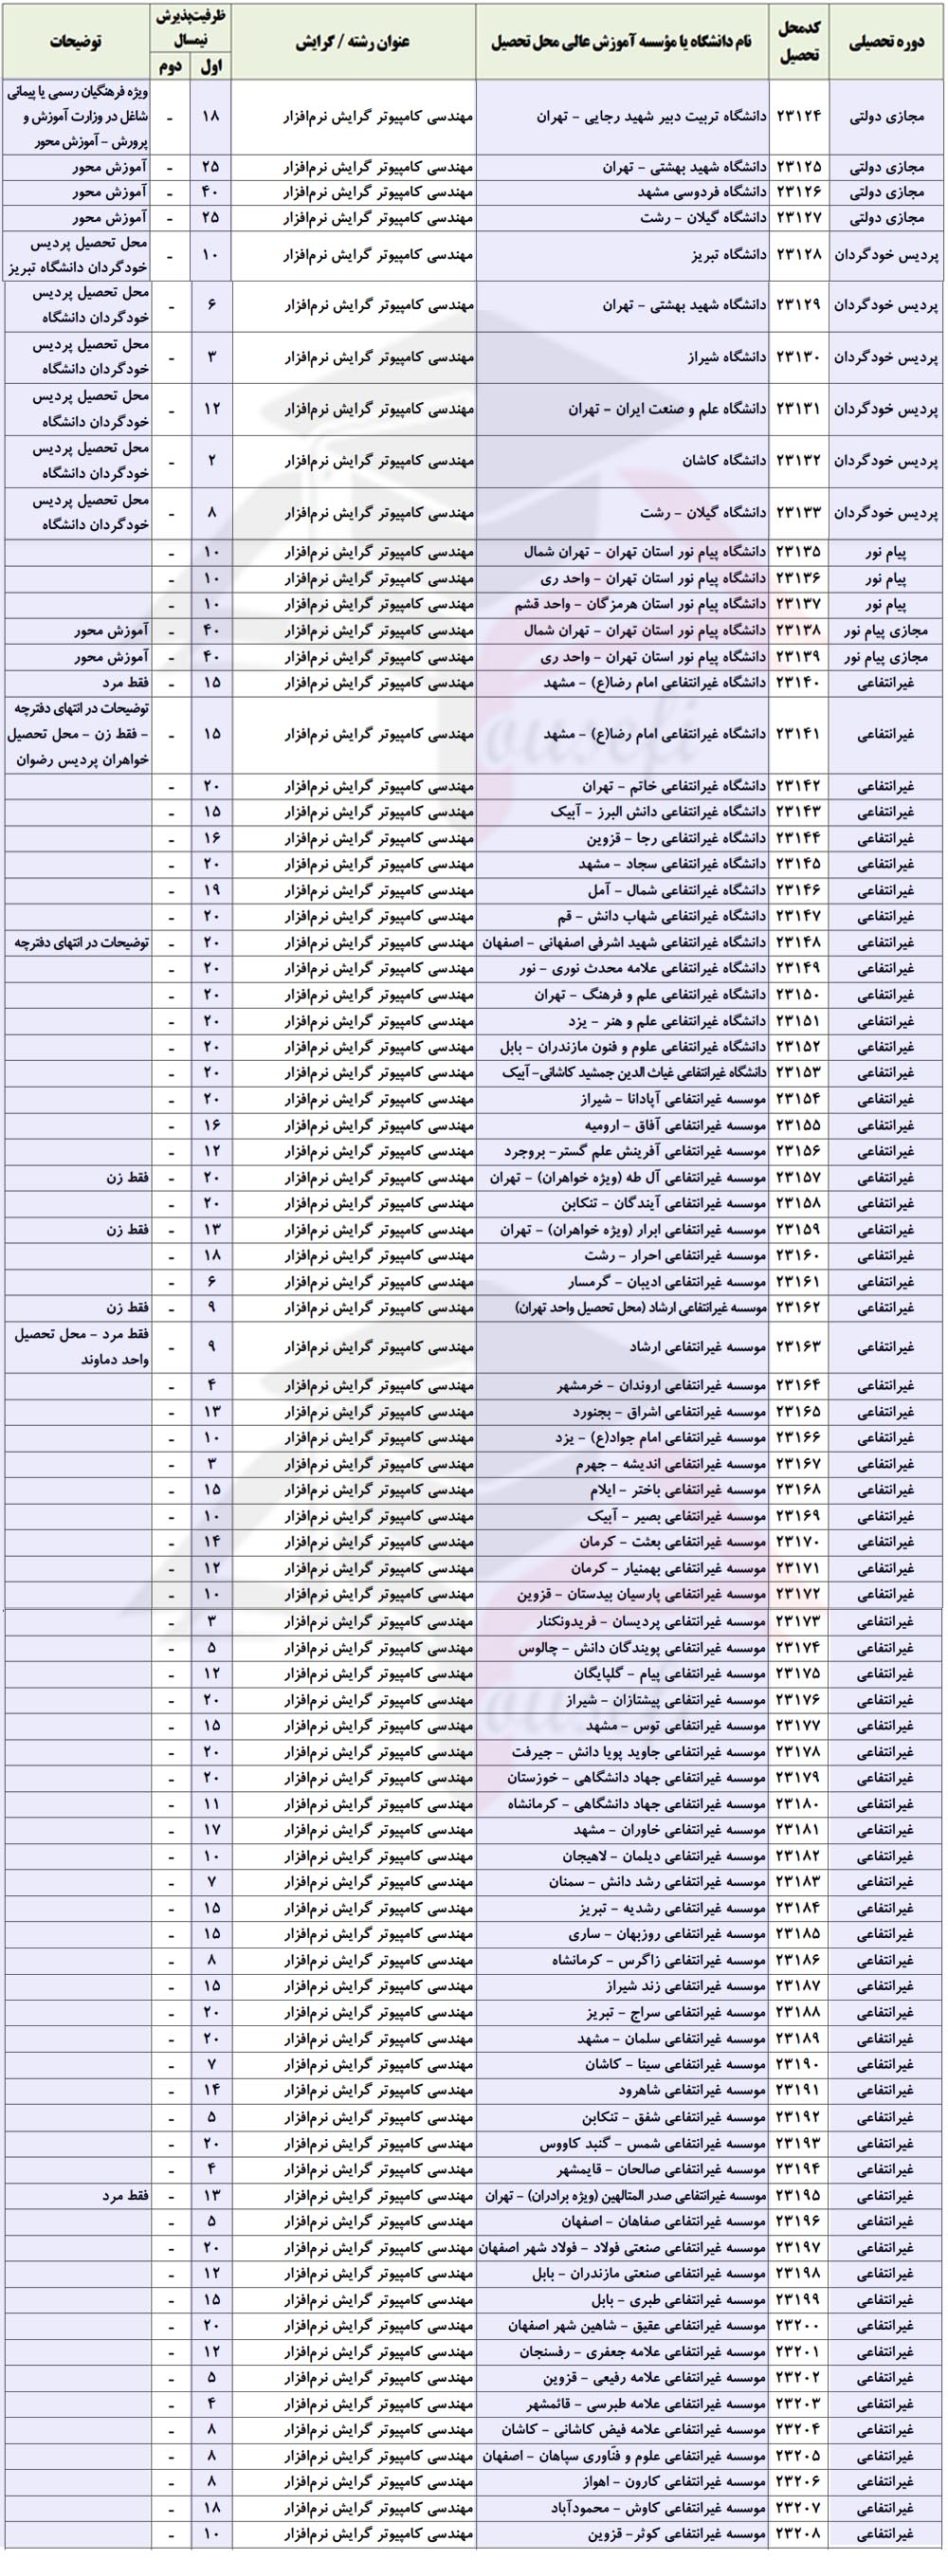 دوره تحصیلی کدمحل تحصیل نام دانشگاه یا مؤسسه آموزش عالی محل تحصیل عنوان رشته / گرایش ظرفیت‌پذیرش نیمسال اول دوم توضیحات
مجازی دولتی ۲۳۱۲۴ دانشگاه تربیت دبیر شهید رجایی - تهران مهندسی کامپیوتر گرایش نرم‌افزار ۱۸ - ویژه فرهنگیان رسمی یا پیمانی شاغل در وزارت آموزش و پرورش - آموزش محور
مجازی دولتی ۲۳۱۲۵ دانشگاه شهید بهشتی - تهران مهندسی کامپیوتر گرایش نرم‌افزار ۲۵ - آموزش محور
مجازی دولتی ۲۳۱۲۶ دانشگاه فردوسی مشهد مهندسی کامپیوتر گرایش نرم‌افزار ۴۰ - آموزش محور
مجازی دولتی ۲۳۱۲۷ دانشگاه گیلان - رشت مهندسی کامپیوتر گرایش نرم‌افزار ۲۵ - آموزش محور
پردیس خودگردان ۲۳۱۲۸ دانشگاه تبریز مهندسی کامپیوتر گرایش نرم‌افزار ۱۰ - محل تحصیل پردیس خودگردان دانشگاه تبریز
پردیس خودگردان ۲۳۱۲۹ دانشگاه شهید بهشتی - تهران مهندسی کامپیوتر گرایش نرم‌افزار ۶ - محل تحصیل پردیس خودگردان دانشگاه
پردیس خودگردان ۲۳۱۳۰ دانشگاه شیراز مهندسی کامپیوتر گرایش نرم‌افزار ۳ - محل تحصیل پردیس خودگردان دانشگاه
پردیس خودگردان ۲۳۱۳۱ دانشگاه علم و صنعت ایران - تهران مهندسی کامپیوتر گرایش نرم‌افزار ۱۲ - محل تحصیل پردیس خودگردان دانشگاه
پردیس خودگردان ۲۳۱۳۲ دانشگاه کاشان مهندسی کامپیوتر گرایش نرم‌افزار ۲ - محل تحصیل پردیس خودگردان دانشگاه
پردیس خودگردان ۲۳۱۳۳ دانشگاه گیلان - رشت مهندسی کامپیوتر گرایش نرم‌افزار ۸ - محل تحصیل پردیس خودگردان دانشگاه
پیام نور ۲۳۱۳۵ دانشگاه پیام نور استان تهران - تهران شمال مهندسی کامپیوتر گرایش نرم‌افزار ۱۰ -
پیام نور ۲۳۱۳۶ دانشگاه پیام نور استان تهران - واحد ری مهندسی کامپیوتر گرایش نرم‌افزار ۱۰ -
پیام نور ۲۳۱۳۷ دانشگاه پیام نور استان هرمزگان - واحد قشم مهندسی کامپیوتر گرایش نرم‌افزار ۱۰ -
مجازی پیام نور ۲۳۱۳۸ دانشگاه پیام نور استان تهران - تهران شمال مهندسی کامپیوتر گرایش نرم‌افزار ۴۰ - آموزش محور
مجازی پیام نور ۲۳۱۳۹ دانشگاه پیام نور استان تهران - واحد ری مهندسی کامپیوتر گرایش نرم‌افزار ۴۰ - آموزش محور
غیرانتفاعی ۲۳۱۴۰ دانشگاه غیرانتفاعی امام رضا(ع) - مشهد مهندسی کامپیوتر گرایش نرم‌افزار ۱۵ - فقط مرد
غیرانتفاعی ۲۳۱۴۱ دانشگاه غیرانتفاعی امام رضا(ع) - مشهد مهندسی کامپیوتر گرایش نرم‌افزار ۱۵ - توضیحات در انتهای دفترچه - فقط زن - محل تحصیل خواهران پردیس رضوان
غیرانتفاعی ۲۳۱۴۲ دانشگاه غیرانتفاعی خاتم - تهران مهندسی کامپیوتر گرایش نرم‌افزار ۲۰ -
غیرانتفاعی ۲۳۱۴۳ دانشگاه غیرانتفاعی دانش البرز - آبیک مهندسی کامپیوتر گرایش نرم‌افزار ۱۵ -
غیرانتفاعی ۲۳۱۴۴ دانشگاه غیرانتفاعی رجا - قزوین مهندسی کامپیوتر گرایش نرم‌افزار ۱۶ -
غیرانتفاعی ۲۳۱۴۵ دانشگاه غیرانتفاعی سجاد - مشهد مهندسی کامپیوتر گرایش نرم‌افزار ۲۰ -
غیرانتفاعی ۲۳۱۴۶ دانشگاه غیرانتفاعی شمال - آمل مهندسی کامپیوتر گرایش نرم‌افزار ۱۹ -
غیرانتفاعی ۲۳۱۴۷ دانشگاه غیرانتفاعی شهاب دانش - قم مهندسی کامپیوتر گرایش نرم‌افزار ۲۰ -
غیرانتفاعی ۲۳۱۴۸ دانشگاه غیرانتفاعی شهید اشرفی اصفهانی - اصفهان مهندسی کامپیوتر گرایش نرم‌افزار ۲۰ - توضیحات در انتهای دفترچه
غیرانتفاعی ۲۳۱۴۹ دانشگاه غیرانتفاعی علامه محدث نوری - نور مهندسی کامپیوتر گرایش نرم‌افزار ۲۰ -
غیرانتفاعی ۲۳۱۵۰ دانشگاه غیرانتفاعی علم و فرهنگ - تهران مهندسی کامپیوتر گرایش نرم‌افزار ۲۰ -
غیرانتفاعی ۲۳۱۵۱ دانشگاه غیرانتفاعی علم و هنر - یزد مهندسی کامپیوتر گرایش نرم‌افزار ۲۰ -
غیرانتفاعی ۲۳۱۵۲ دانشگاه غیرانتفاعی علوم و فنون مازندران - بابل مهندسی کامپیوتر گرایش نرم‌افزار ۲۰ -
غیرانتفاعی ۲۳۱۵۳ دانشگاه غیرانتفاعی غیاث الدین جمشید کاشانی- آبیک مهندسی کامپیوتر گرایش نرم‌افزار ۲۰ -
غیرانتفاعی ۲۳۱۵۴ موسسه غیرانتفاعی آپادانا - شیراز مهندسی کامپیوتر گرایش نرم‌افزار ۲۰ -
غیرانتفاعی ۲۳۱۵۵ موسسه غیرانتفاعی آفاق - ارومیه مهندسی کامپیوتر گرایش نرم‌افزار ۱۶ -
غیرانتفاعی ۲۳۱۵۶ موسسه غیرانتفاعی آفرینش علم گستر- بروجرد مهندسی کامپیوتر گرایش نرم‌افزار ۱۲ -
غیرانتفاعی ۲۳۱۵۷ موسسه غیرانتفاعی آل طه (ویژه خواهران) - تهران مهندسی کامپیوتر گرایش نرم‌افزار ۲۰ - فقط زن
غیرانتفاعی ۲۳۱۵۸ موسسه غیرانتفاعی آیندگان - تنکابن مهندسی کامپیوتر گرایش نرم‌افزار ۲۰ -
غیرانتفاعی ۲۳۱۵۹ موسسه غیرانتفاعی ابرار (ویژه خواهران) - تهران مهندسی کامپیوتر گرایش نرم‌افزار ۱۳ - فقط زن
غیرانتفاعی ۲۳۱۶۰ موسسه غیرانتفاعی احرار - رشت مهندسی کامپیوتر گرایش نرم‌افزار ۱۸ -
غیرانتفاعی ۲۳۱۶۱ موسسه غیرانتفاعی ادیبان - گرمسار مهندسی کامپیوتر گرایش نرم‌افزار ۶ -
غیرانتفاعی ۲۳۱۶۲ موسسه غیرانتفاعی ارشاد (محل تحصیل واحد تهران) مهندسی کامپیوتر گرایش نرم‌افزار ۹ - فقط زن
غیرانتفاعی ۲۳۱۶۳ موسسه غیرانتفاعی ارشاد مهندسی کامپیوتر گرایش نرم‌افزار ۹ - فقط مرد - محل تحصیل واحد دماوند
غیرانتفاعی ۲۳۱۶۴ موسسه غیرانتفاعی اروندان - خرمشهر مهندسی کامپیوتر گرایش نرم‌افزار ۴ -
غیرانتفاعی ۲۳۱۶۵ موسسه غیرانتفاعی اشراق - بجنورد مهندسی کامپیوتر گرایش نرم‌افزار ۱۳ -
غیرانتفاعی ۲۳۱۶۶ موسسه غیرانتفاعی امام جواد(ع) - یزد مهندسی کامپیوتر گرایش نرم‌افزار ۱۰ -
غیرانتفاعی ۲۳۱۶۷ موسسه غیرانتفاعی اندیشه - جهرم مهندسی کامپیوتر گرایش نرم‌افزار ۳ -
غیرانتفاعی ۲۳۱۶۸ موسسه غیرانتفاعی باختر - ایلام مهندسی کامپیوتر گرایش نرم‌افزار ۱۵ -
غیرانتفاعی ۲۳۱۶۹ موسسه غیرانتفاعی بصیر - آبیک مهندسی کامپیوتر گرایش نرم‌افزار ۱۰ -
غیرانتفاعی ۲۳۱۷۰ موسسه غیرانتفاعی بعثت - کرمان مهندسی کامپیوتر گرایش نرم‌افزار ۱۴ -
غیرانتفاعی ۲۳۱۷۱ موسسه غیرانتفاعی بهمنیار - کرمان مهندسی کامپیوتر گرایش نرم‌افزار ۱۲ -
غیرانتفاعی ۲۳۱۷۲ موسسه غیرانتفاعی پارسیان بیدستان - قزوین مهندسی کامپیوتر گرایش نرم‌افزار ۱۰ -
غیرانتفاعی ۲۳۱۷۳ موسسه غیرانتفاعی پردیسان - فریدونکنار مهندسی کامپیوتر گرایش نرم‌افزار ۳ -
غیرانتفاعی ۲۳۱۷۴ موسسه غیرانتفاعی پویندگان دانش - چالوس مهندسی کامپیوتر گرایش نرم‌افزار ۵ -
غیرانتفاعی ۲۳۱۷۵ موسسه غیرانتفاعی پیام - گلپایگان مهندسی کامپیوتر گرایش نرم‌افزار ۱۲ -
غیرانتفاعی ۲۳۱۷۶ موسسه غیرانتفاعی پیشتازان - شیراز مهندسی کامپیوتر گرایش نرم‌افزار ۲۰ -
غیرانتفاعی ۲۳۱۷۷ موسسه غیرانتفاعی توس - مشهد مهندسی کامپیوتر گرایش نرم‌افزار ۱۵ -
غیرانتفاعی ۲۳۱۷۸ موسسه غیرانتفاعی جاوید پویا دانش - جیرفت مهندسی کامپیوتر گرایش نرم‌افزار ۲۰ -
غیرانتفاعی ۲۳۱۷۹ موسسه غیرانتفاعی جهاد دانشگاهی - خوزستان مهندسی کامپیوتر گرایش نرم‌افزار ۲۰ -
غیرانتفاعی ۲۳۱۸۰ موسسه غیرانتفاعی جهاد دانشگاهی - کرمانشاه مهندسی کامپیوتر گرایش نرم‌افزار ۱۱ -
غیرانتفاعی ۲۳۱۸۱ موسسه غیرانتفاعی خاوران - مشهد مهندسی کامپیوتر گرایش نرم‌افزار ۱۷ -
غیرانتفاعی ۲۳۱۸۲ موسسه غیرانتفاعی دیلمان - لاهیجان مهندسی کامپیوتر گرایش نرم‌افزار ۱۰ -
غیرانتفاعی ۲۳۱۸۳ موسسه غیرانتفاعی رشد دانش - سمنان مهندسی کامپیوتر گرایش نرم‌افزار ۷ -
غیرانتفاعی ۲۳۱۸۴ موسسه غیرانتفاعی رشدیه - تبریز مهندسی کامپیوتر گرایش نرم‌افزار ۱۵ -
غیرانتفاعی ۲۳۱۸۵ موسسه غیرانتفاعی روزبهان - ساری مهندسی کامپیوتر گرایش نرم‌افزار ۱۵ -
غیرانتفاعی ۲۳۱۸۶ موسسه غیرانتفاعی زاگرس - کرمانشاه مهندسی کامپیوتر گرایش نرم‌افزار ۸ -
غیرانتفاعی ۲۳۱۸۷ موسسه غیرانتفاعی زند شیراز مهندسی کامپیوتر گرایش نرم‌افزار ۱۵ -
غیرانتفاعی ۲۳۱۸۸ موسسه غیرانتفاعی سراج - تبریز مهندسی کامپیوتر گرایش نرم‌افزار ۲۰ -
غیرانتفاعی ۲۳۱۸۹ موسسه غیرانتفاعی سلمان - مشهد مهندسی کامپیوتر گرایش نرم‌افزار ۲۰ -
غیرانتفاعی ۲۳۱۹۰ موسسه غیرانتفاعی سینا - کاشان مهندسی کامپیوتر گرایش نرم‌افزار ۷ -
غیرانتفاعی ۲۳۱۹۱ موسسه غیرانتفاعی شاهرود مهندسی کامپیوتر گرایش نرم‌افزار ۱۴ -
غیرانتفاعی ۲۳۱۹۲ موسسه غیرانتفاعی شفق - تنکابن مهندسی کامپیوتر گرایش نرم‌افزار ۵ -
غیرانتفاعی ۲۳۱۹۳ موسسه غیرانتفاعی شمس - گنبد کاووس مهندسی کامپیوتر گرایش نرم‌افزار ۲۰ -
غیرانتفاعی ۲۳۱۹۴ موسسه غیرانتفاعی صالحان - قایمشهر مهندسی کامپیوتر گرایش نرم‌افزار ۴ -
غیرانتفاعی ۲۳۱۹۵ موسسه غیرانتفاعی صدر المتالهین (ویژه برادران) - تهران مهندسی کامپیوتر گرایش نرم‌افزار ۱۳ - فقط مرد
غیرانتفاعی ۲۳۱۹۶ موسسه غیرانتفاعی صفاهان - اصفهان مهندسی کامپیوتر گرایش نرم‌افزار ۵ -
غیرانتفاعی ۲۳۱۹۷ موسسه غیرانتفاعی صنعتی فولاد - فولاد شهر اصفهان مهندسی کامپیوتر گرایش نرم‌افزار ۲۰ -
غیرانتفاعی ۲۳۱۹۸ موسسه غیرانتفاعی صنعتی مازندران - بابل مهندسی کامپیوتر گرایش نرم‌افزار ۱۲ -
غیرانتفاعی ۲۳۱۹۹ موسسه غیرانتفاعی طبری - بابل مهندسی کامپیوتر گرایش نرم‌افزار ۱۵ -
غیرانتفاعی ۲۳۲۰۰ موسسه غیرانتفاعی عقیق - شاهین شهر اصفهان مهندسی کامپیوتر گرایش نرم‌افزار ۲۰ -
غیرانتفاعی ۲۳۲۰۱ موسسه غیرانتفاعی علامه جعفری - رفسنجان مهندسی کامپیوتر گرایش نرم‌افزار ۱۲ -
غیرانتفاعی ۲۳۲۰۲ موسسه غیرانتفاعی علامه رفیعی - قزوین مهندسی کامپیوتر گرایش نرم‌افزار ۵ -
غیرانتفاعی ۲۳۲۰۳ موسسه غیرانتفاعی علامه طبرسی - قائمشهر مهندسی کامپیوتر گرایش نرم‌افزار ۴ -
غیرانتفاعی ۲۳۲۰۴ موسسه غیرانتفاعی علامه فیض کاشانی - کاشان مهندسی کامپیوتر گرایش نرم‌افزار ۸ -
غیرانتفاعی ۲۳۲۰۵ موسسه غیرانتفاعی علوم و فنّاوری سپاهان - اصفهان مهندسی کامپیوتر گرایش نرم‌افزار ۸ -
غیرانتفاعی ۲۳۲۰۶ موسسه غیرانتفاعی کارون - اهواز مهندسی کامپیوتر گرایش نرم‌افزار ۸ -
غیرانتفاعی ۲۳۲۰۷ موسسه غیرانتفاعی کاوش - محمودآباد مهندسی کامپیوتر گرایش نرم‌افزار ۱۸ -
غیرانتفاعی ۲۳۲۰۸ موسسه غیرانتفاعی کوثر- قزوین مهندسی کامپیوتر گرایش نرم‌افزار ۱۰ -